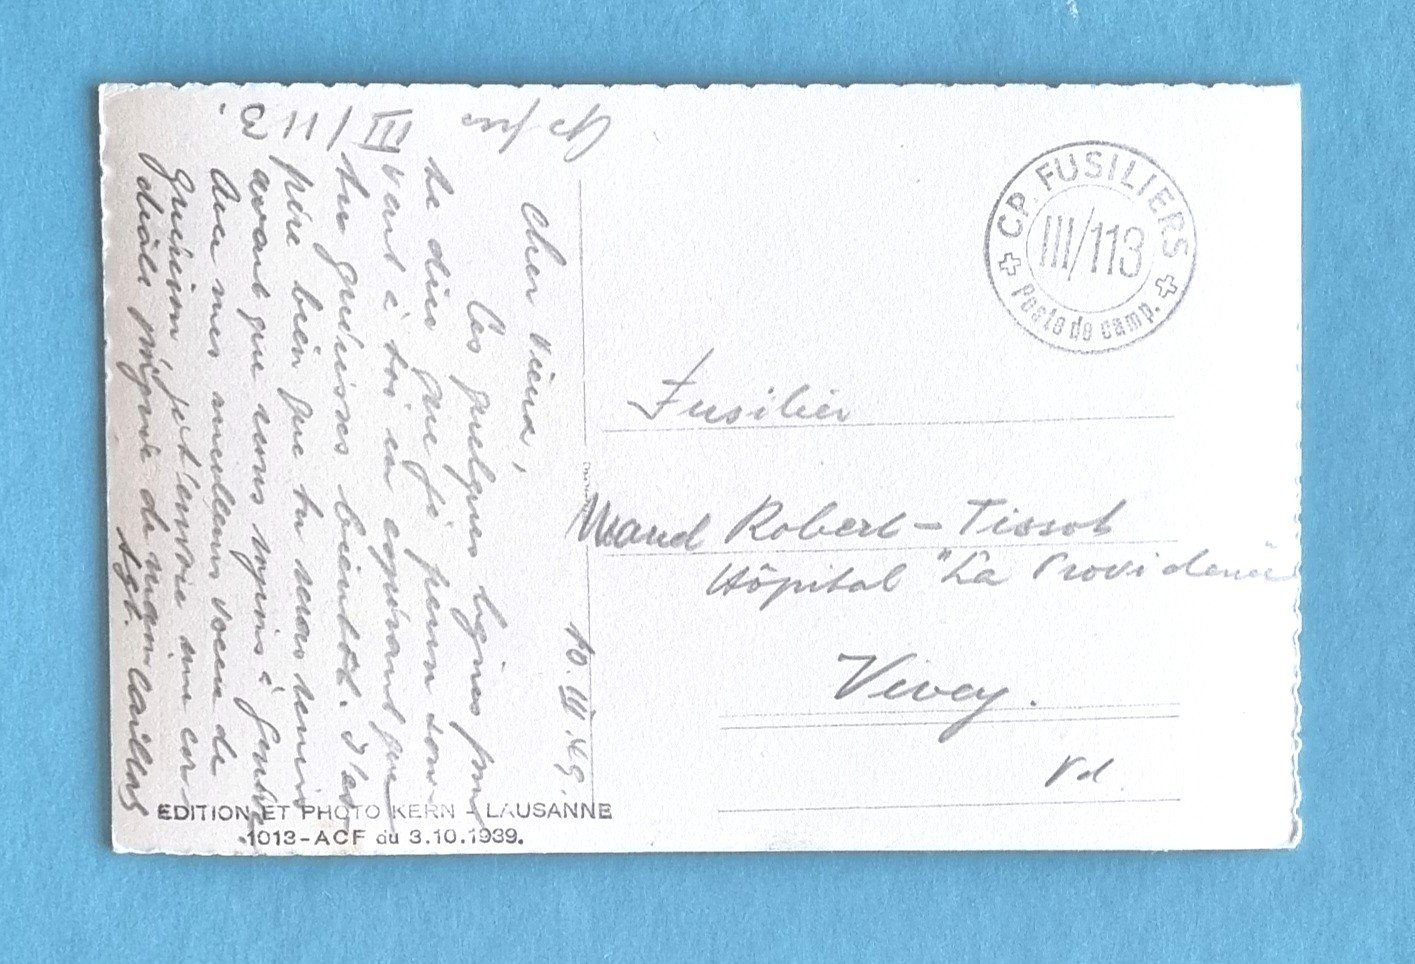 Cp. fus.
III/113.
10.III.45.
Cher
Ces quelques lignes pour
te dire que je pense sou-
vent à toi en espérant que
tu guérisses bientôt. J'es-
père bien que tu seras
avant que nous soyons à
Avec mes meilleurs voeux de
guérison je t'envoie une cor-
diale poignée de main
Sgt.
CP. FUSILIERS
III/113
Poste de camp.
Fusilier
Robert-Tissot
Hôpital "La Providence"
Vevey.
Vd.
EDITION ET PHOTO KERN - LAUSANNE
1013-ACF du 3.10.1939.